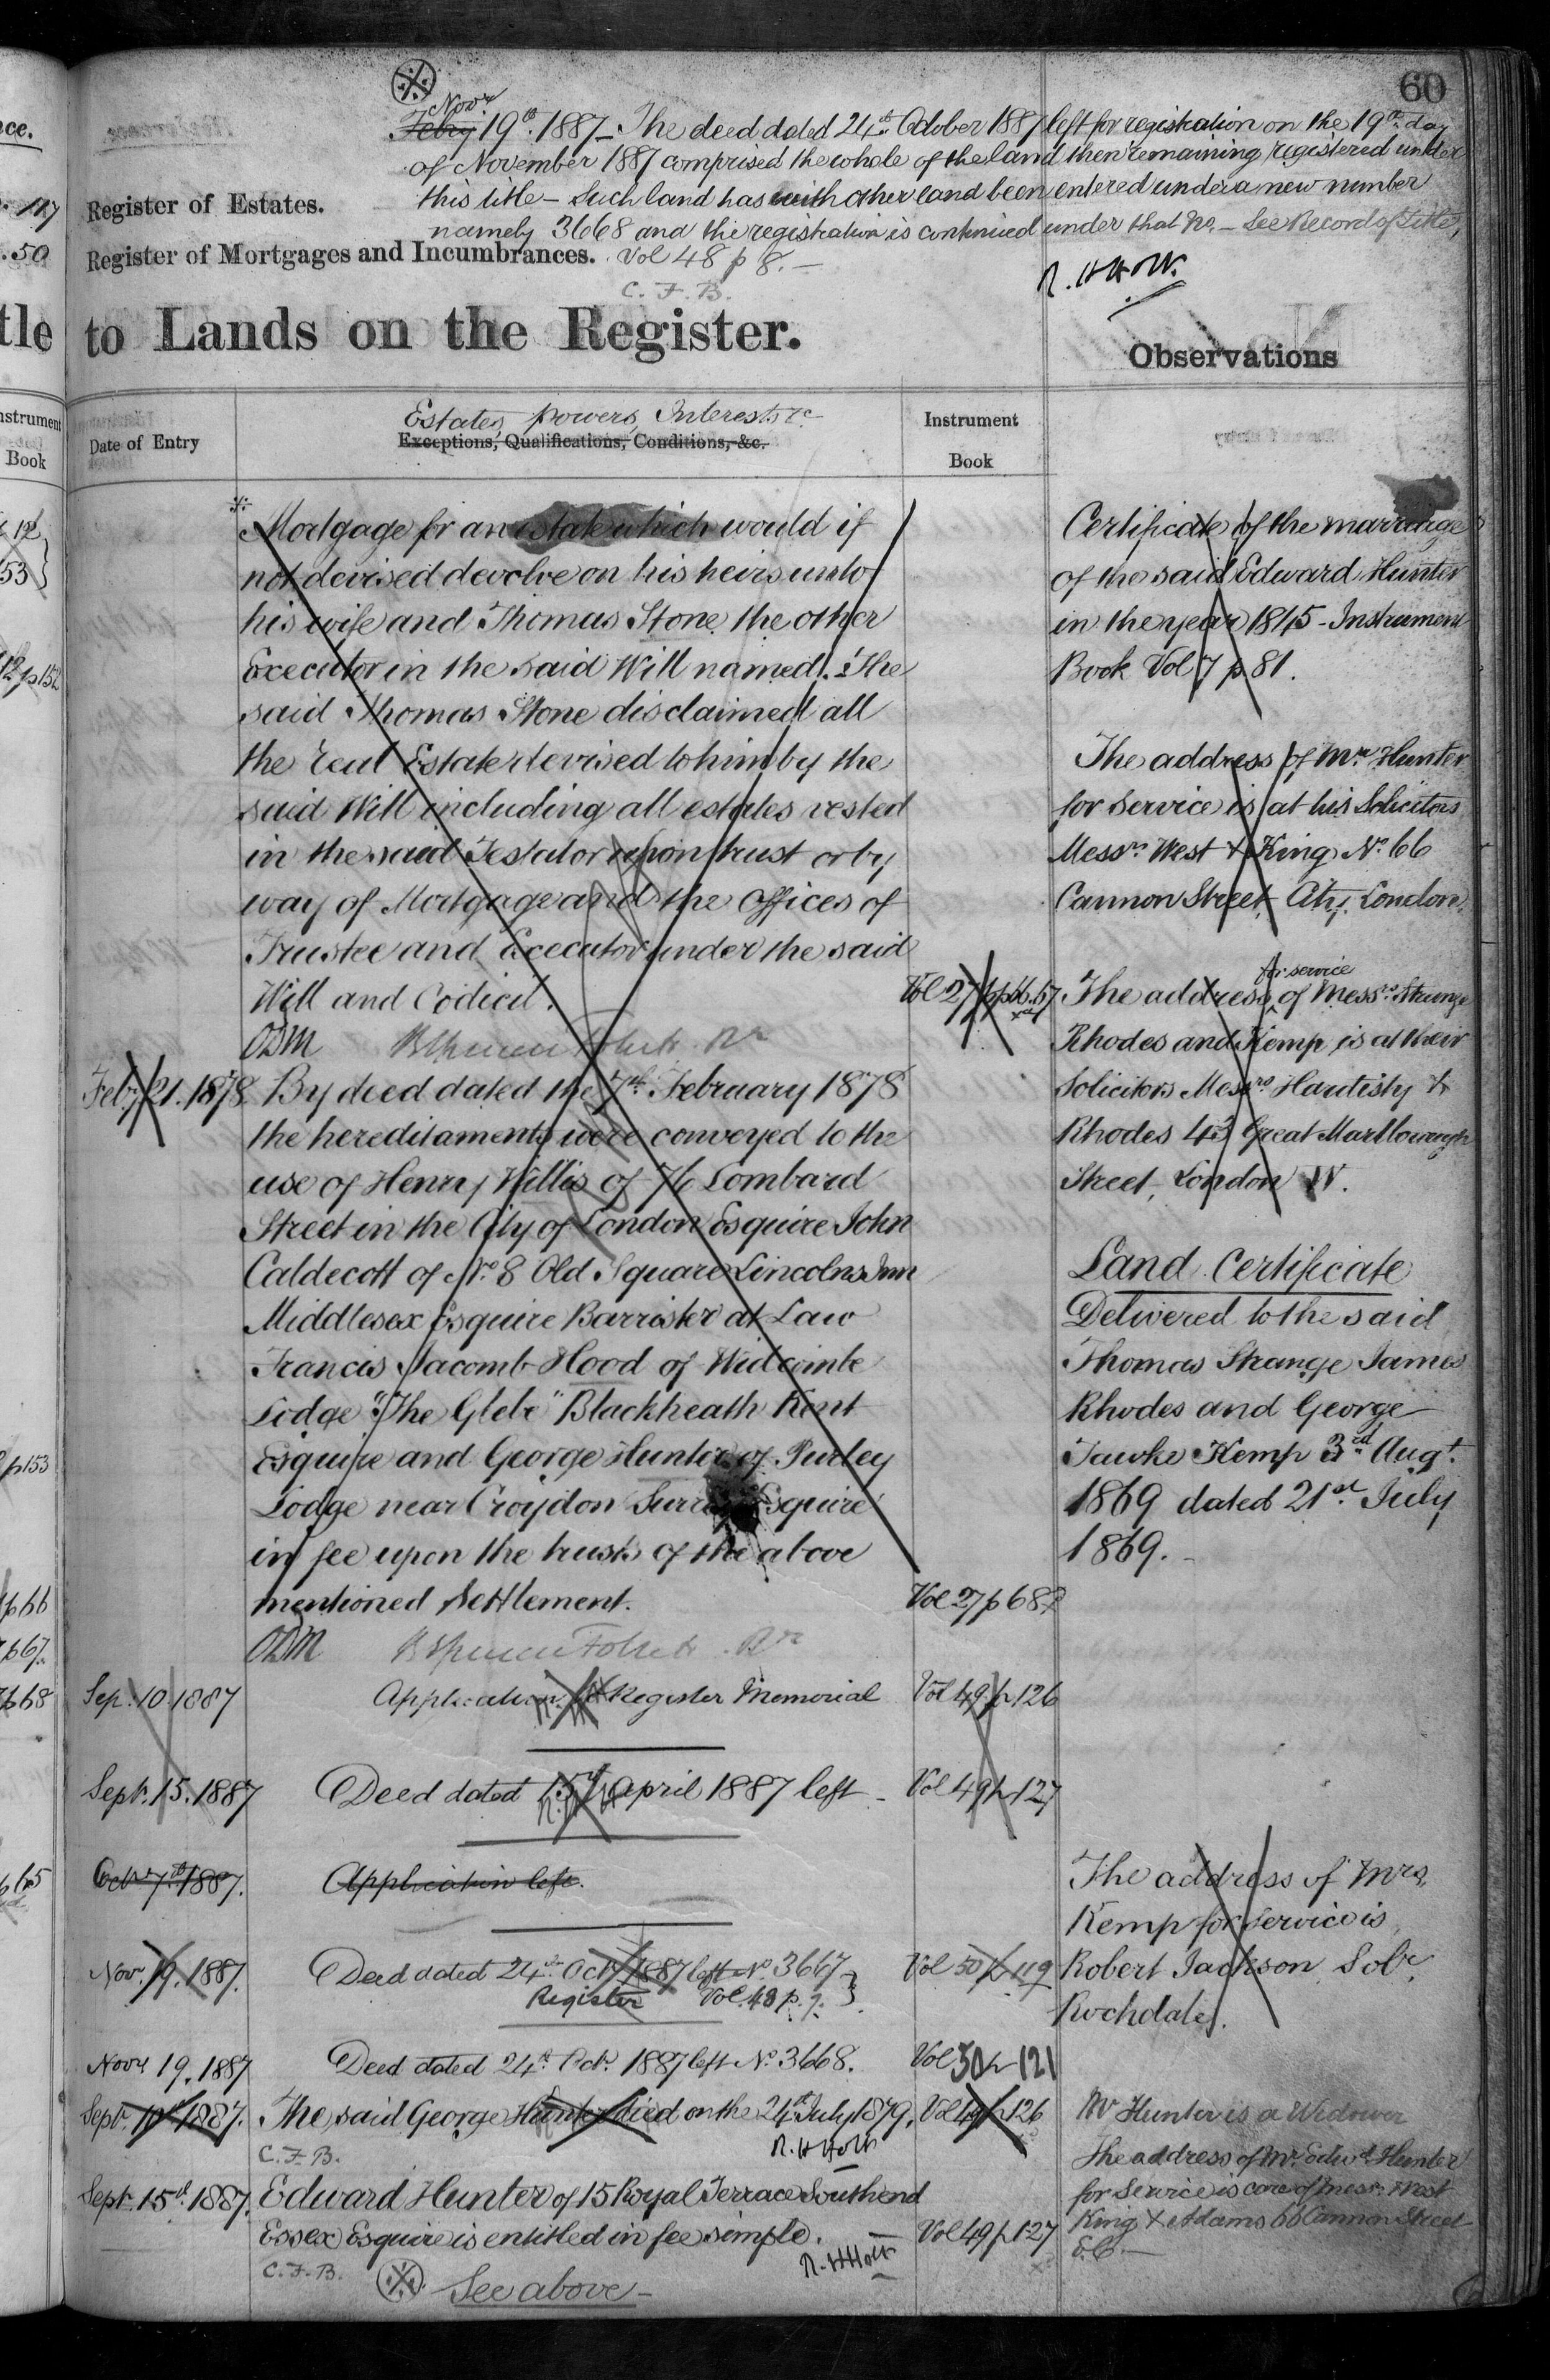 60
Novr
Febry 19th. 1887 - The deed dated 24th October 1887 left for registration on the 19th day
of November 1887 comprised the whole of the land then remaining registered under
this title - Such land has with other land been entered under a new number
namely 3668 and the registration is continued under that No. - See Record of Title,
Vol 48 p 8. -
C. F. B.
R. H. Holt.
Register of Estates.
Register of Mortgages and Incumbrances.
to Lands on the Register.
Observations
Date of Entry
Estates, powers, Interests &c
Exceptions, Qualifications, Conditions, &c.
Instrument
Book
Mortgage for an estate which would if
not devised devolve on his heirs unto
his wife and Thomas Stone the other
Executor in the said Will named. The
said Thomas Stone disclaimed all
the real Estate devised to him by the
said Will including all estates vested
in the said Testator upon trust or by
way of Mortgage and the Offices of
Trustee and Executor under the said
Will and Codicil.
Vol 27 pp 66.67
ODM
Feby. 21. 1878 By deed dated the 7th February 1878
the hereditaments were conveyed to the
use of Henry Willis of 76 Lombard
Street in the City of London Esquire John
Caldecott of No. 8 Old Square Lincolns Inn
Middlesex Esquire Barrister at Law
Francis Jacomb Hood of Widcombe
Lodge "The Glebe" Blackheath Kent
Esquire and George Hunter of Purley
Lodge near Croydon Surrey Esquire
in fee upon the trusts of the above
mentioned Settlement.
Vol 27 p 68
ODM
Sep. 10. 1887 Application to Register Memorial Vol 49 p 126
Sept. 15. 1887 Deed dated 15th April 1887 left - Vol 49 p 127
Octr 7th 1887. Application left.
Nov. 19. 1887. Deed dated 24th Oct. 1887 left No. 3667 Vol 50 p 119
Register Vol. 48 p. 7.
Novr 19. 1887 Deed dated 24th Octr. 1887 left No. 3668. Vol 50 p 121
Sept. 10th 1887. The said George Hunter died on the 24th July 1879, Vol 49 p 126
C. F. B. R. H Holt
Sept. 15th. 1887. Edward Hunter of 15 Royal Terrace Southend
Essex Esquire is entitled in fee simple. - Vol 49 p 127
C. F. B. R. H Holt
See above -
Certificate of the marriage
of the said Edward Hunter
in the year 1845 - Instrument
Book Vol 7 p 81.
The address of Mr. Hunter
for service is at his Solicitors
Messrs. West & King No. 66
Cannon Street City London.
for service
The address of Messrs. Strange
Rhodes and Kemp is at their
Solicitors Messrs Hautisty &
Rhodes 43 Great Marlborough
Street, London W.
Land Certificate
Delivered to the said
Thomas Strange James
Rhodes and George
Tawke Kemp 3rd Augt.
1869 dated 21st July
1869. -
The address of Mrs.
Kemp for service is
Robert Jackson Solr.
Rochdale.
Mr Hunter is a Widower
The address of Mr. Edwd. Hunter
for service is care of Messrs. West
King & Adams 66 Cannon Street
E.C. -